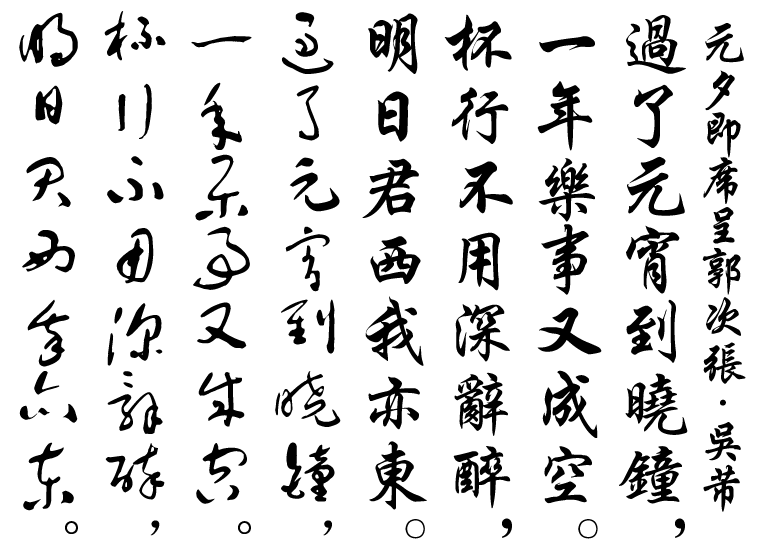 元夕即席呈郭次張·吳芾
過了元宵到曉鐘，
一年樂事又成空。
杯行不用深辭醉，
明日君西我亦東。
過了元宵到曉鐘，
一年樂事又成空。
杯行不用深辭醉，
明日君西我亦東。